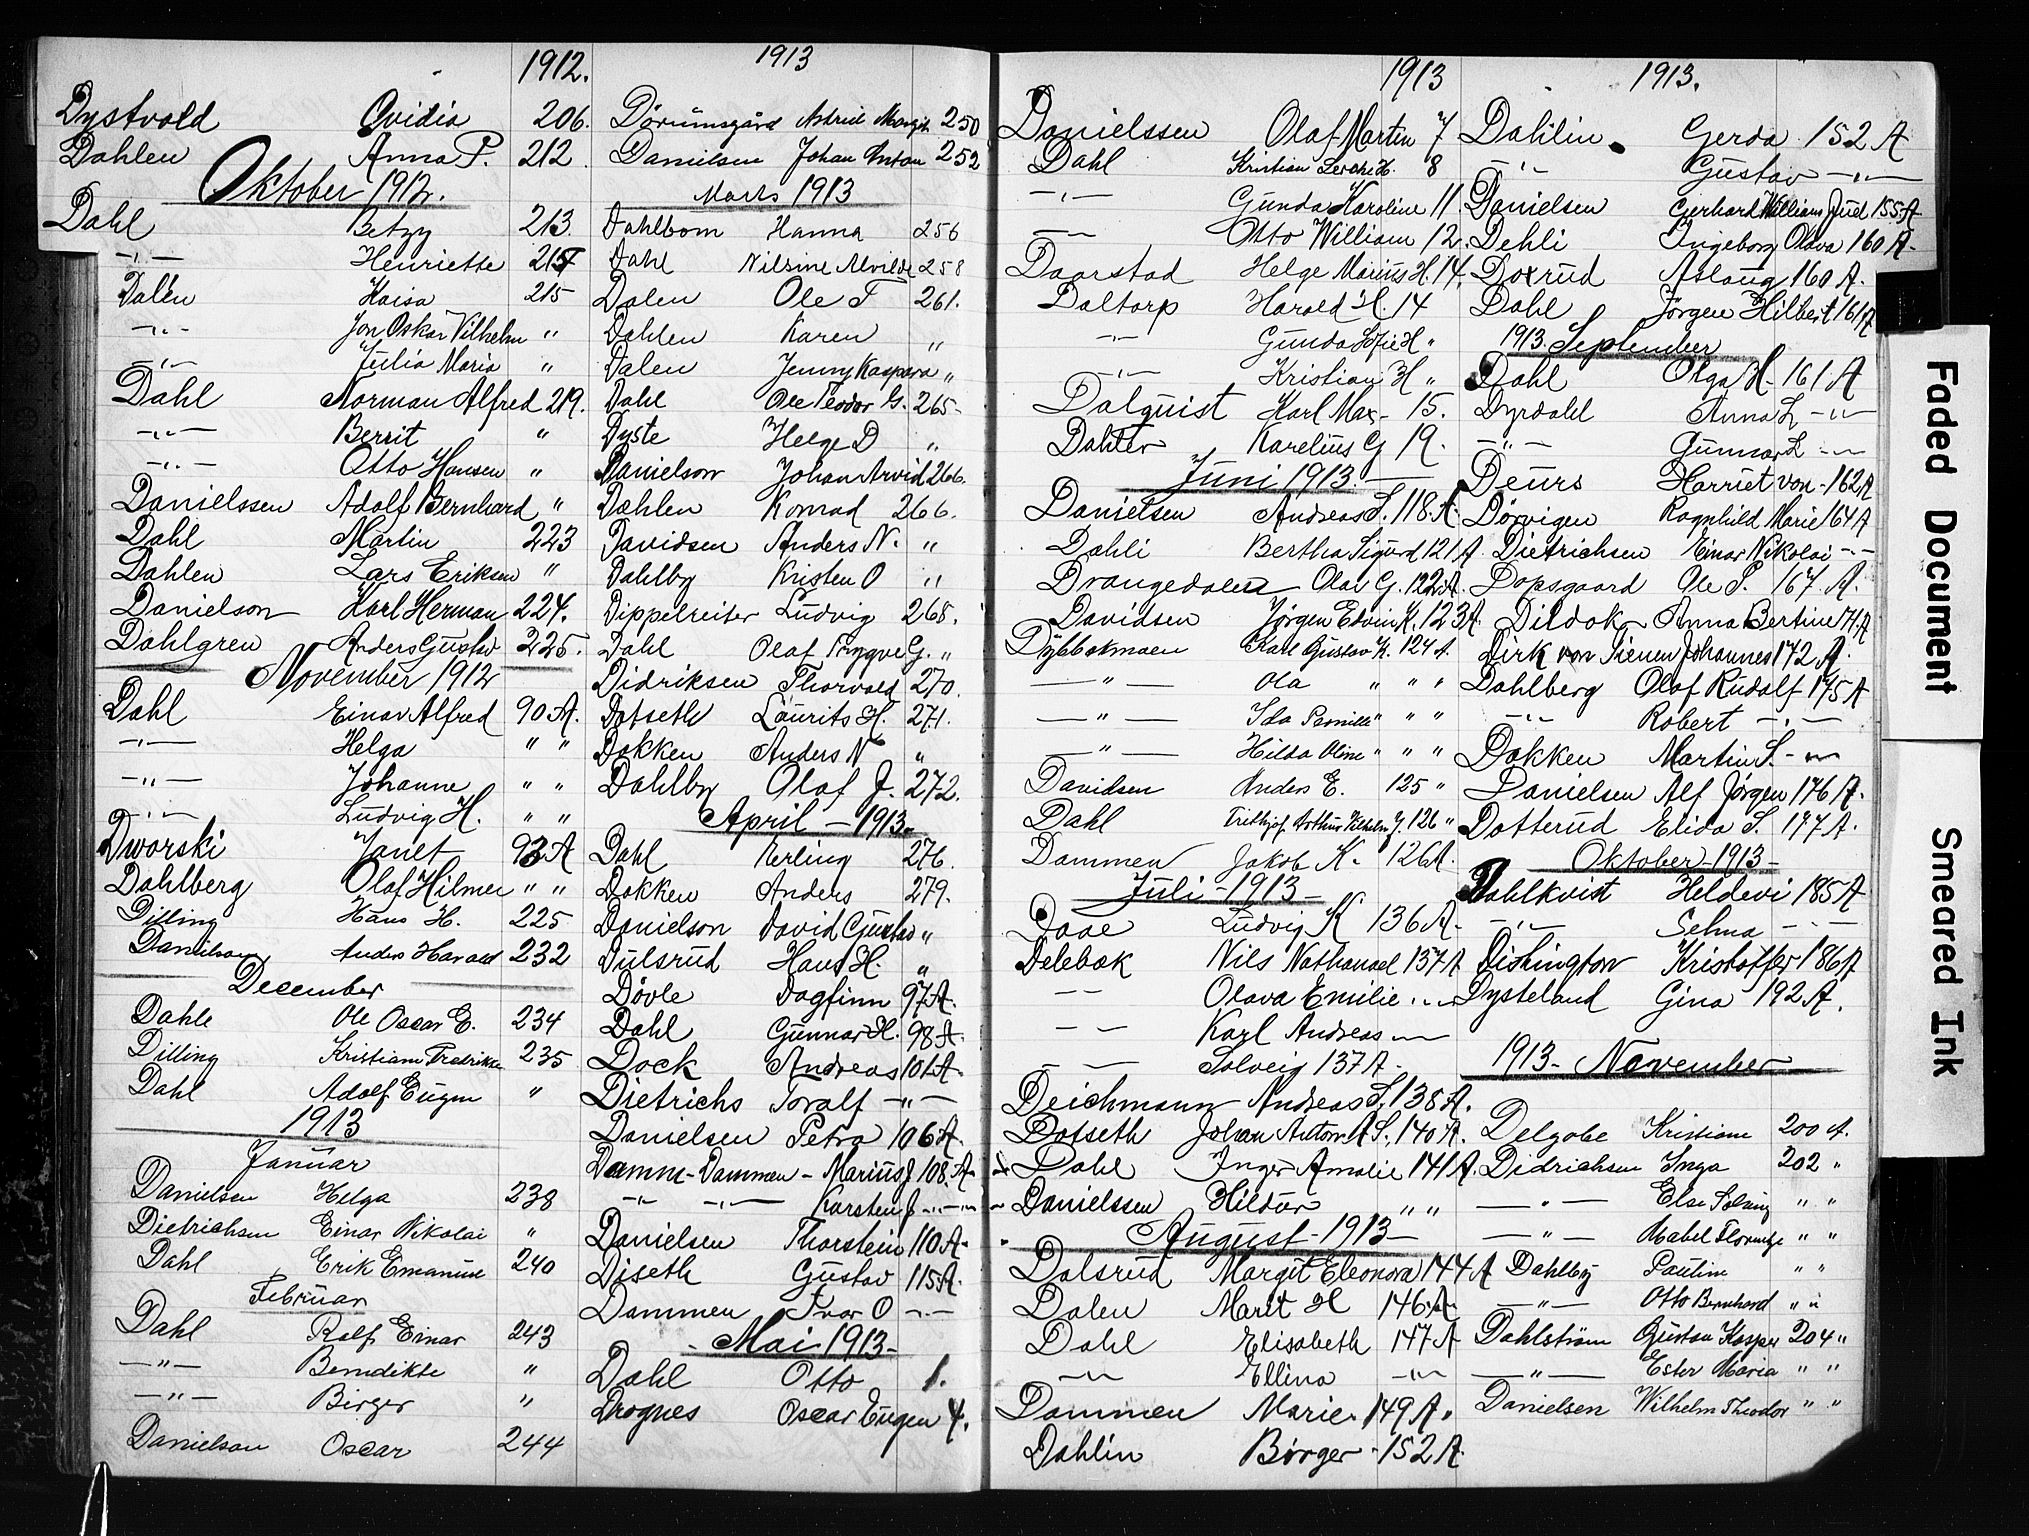 1912.
Dystvold Ovidia 206.
Dahlen Anna P. 212.
Oktober 1912.
Dahl Betzy 213.
-"- Henriette 215
Dalen Kaisa 215
-"- Jon Oskar Vilhelm "
-"- Julia Maria "
Dahl Norman Alfred 219.
-"- Berit "
-"- Otto Hansen "
Danielssen Adolf Bernhard "
Dahl Martin 223
Dahlen Lars Eriksen "
Danielson Karl Herman 224.
Dahlgren Anders Gustav 225.
November 1912
Dahl Einar Alfred 90 A.
-"- Helga " "
-"- Johanne " "
-"- Ludvig H. " "
Dworski Janet 93 A
Dahlberg Olaf Hilmer " "
Dilling Hans H. 225
Danielson Anders Harald 232
December
Dahle Ole Oscar E. 234
Dilling Kristiane Fredrikke 235
Dahl Adolf Eugen "
1913
Januar
Danielsen Helga 238
Dietrichsen Einar Nikolai "
Dahl Erik Emanuel 240
Februar
Dahl Rolf Einar 243
-"- Benedikte "
-"- Birger "
Danielsen Oscar 244
1913
Dörumsgård Astrid Margit 250
Danielsen Johan Anton 252
Marts 1913
Dahlbom Hanna 256
Dahl Nilsine Alvilde 258
Dalen Ole T 261.
Dahlen Karen "
Dalen Jenny Kaspara "
Dahl Ole Teodor G. 265-
Dyste Helge D "
Danielson Johan Arvid 266.
Dahlen Konrad 266.
Davidsen Anders N. "
Dahlby Kristen O "
Dippelreiter Ludvig 268.
Dahl Olaf Trygve G. "
Didriksen Thorvald 270.
Dotseth Laurits H. 271.
Dokken Anders N "
Dahlby Olaf J. 272.
April - 1913.
Dahl Erling 276.
Dokken Anders 279.
Danielson David Gustav "
Dulsrud Hans H. "
Dövle Dagfinn 97 A.
Dahl Gunnar H. 98 A.
Dock Andreas 101 A.
Dietrichs Toralf -"-
Danielsen Petra 106 A.
Damm-Dammen - Marius J 108. A-
-"- -"- Karsten J -"-
Danielsen Thorstein 110 A-
Diseth Gustav 115 A.
Dammen Ivar O -"-
- Mai 1913-
Dahl Otto 1.
Drognes Oscar Eugen 4.
1913
Danielssen Olaf Martin 7
Dahl Kristian Lerche H. 8
-"- Gunda Karoline 11.
-"- Otto William 12.
Daarstad Helge Marius H. 14.
Daltorp Harald H. 14
-"- Gunda Sofie H "
-"- Kristian H "
Dalquist Karl Max- 15.
Dahler Karelius G 19.
Juni 1913.
Danielsen Andreas S. 118. A.
Dahli Bertha Sigurd 121 A.
Drangedalen Olav G. 122 A.
Davidsen Jørgen Edvin K. 123 A.
Dybbokmoen Karl Gustav K. 124 A.
-"- Ola " " "
-"- Ida Pernille " " "
-"- Hilda Oline " " "
Davidsen Anders E. 125 "
Dahl Frithjof Arthur Vilhelm J. 126 "
Dammen Jakob K. 126 A.
Juli - 1913 -
Daae Ludvig K 136 A.
Delebak Nils Nathanael 137 A
-"- Olava Emilie -"-
-"- Karl Andreas -"-
-"- Solveig 137 A.
Deichmann Andreas S. 138 A.
Dotseth Johan Anton A. S. 140 A.
Dahl Inger Amalie 141 A.
Danielssen Hildur " "
August - 1913 -
Dalsrud Margit Eleonora 144 A
Dalen Marit H 146 A.
Dahl Elisabeth 147 A
-"- Ellina -"-
Dammen Marie 149 A.
Dahlin Birger - 152 A
1913.
Dahlin. Gerda 152 A
-"- Gustav -"-
Danielsen Gerhard William Juel 155 A
Dehli Ingeborg Olava 160 A.
Doxrud Aslaug 160 A.
Dahl Jörgen Hilbert 161 A
1913. September
Dahl Olga H - 161 A
Dyrdahl Anna L -"-
-"- Gunnar L -"-
Deurs Harriet von - 162 A
Dörvigen Ragnhild Marie 164 A
Dietrichsen Einar Nikolai -"-
Dopsgaard Ole S. 167. A.
Dildok Anna Bertine 171. A
Dirk von Tienen Johannes 172 A.
Dahlberg Olaf Rudolf 175 A
-"- Robert -"-
Dokken Martin S. -"-
Danielsen Alf Jörgen 176 A.
Dotterud Elida S. 177 A.
Oktober - 1913 -
Dahlkvist Heldevi 185 A
-"- Selma -"-
Dishington Kristoffer 186 A
Dysteland Gina 192 A.
1913 - November
Delgobe Kristiane 200 A.
Didrichsen Inga 202 "
-"- Else Solveig " "
-"- Mabel Florence " "
Dahlby Pauline " "
-"- Otto Bernhard " "
Dahlstrøm Gustav Kasper 204 "
-"- Ester Maria " "
Danielsen Wilhelm Theodor " "
Faded Document
Smeared Ink